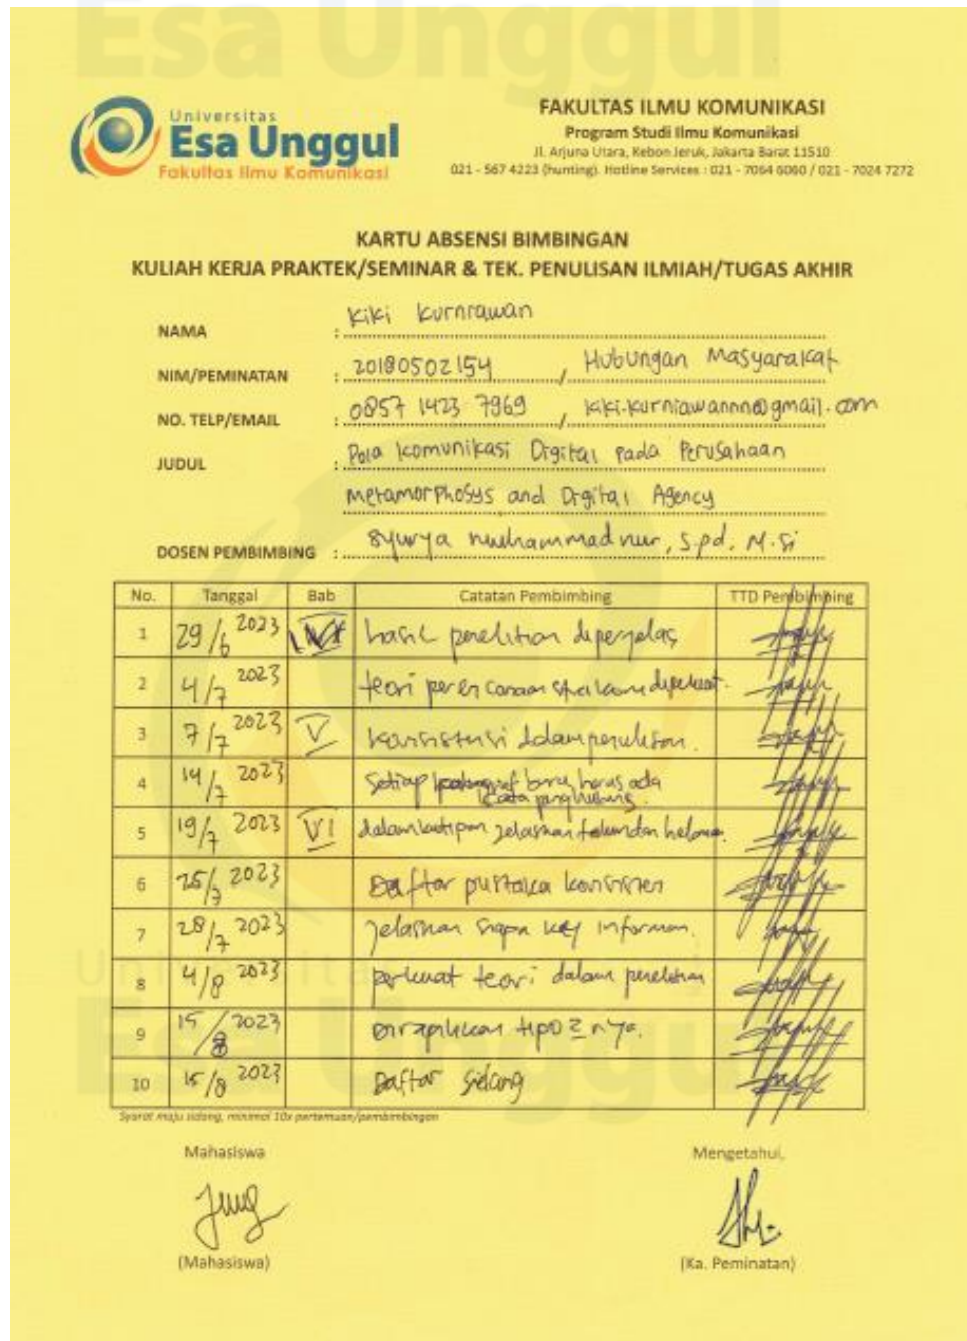 Esa Unggul
Universitas
Esa Unggul
Fakultas Ilmu Komunikasi
FAKULTAS ILMU KOMUNIKASI
Program Studi Ilmu Komunikasi
Jl. Arjuna Utara, Kebon Jeruk, Jakarta Barat 11510
021 - 567 4223 (hunting). Hotline Services : 021 - 7064 6060 / 021 - 7024 7272
KARTU ABSENSI BIMBINGAN
KULIAH KERJA PRAKTEK/SEMINAR & TEK. PENULISAN ILMIAH/TUGAS AKHIR
NAMA : Kiki Kurniawan
NIM/PEMINATAN : 20180502154 / Hubungan Masyarakat
NO. TELP/EMAIL : 0857 1423 7969 / kiki.kurniawannn@gmail.com
JUDUL : Pola Komunikasi Digital pada Perusahaan
Metamorphosys and Digital Agency
DOSEN PEMBIMBING : Syurya muhammad nur, S.pd, M.Si
No. Tanggal Bab Catatan Pembimbing TTD Pembimbing
1 29/6 2023 hasil penelitian diperjelas
2 4/7 2023 teori perencanaan diperkuat.
3 7/7 2023 V konsistensi dalam penulisan.
4 14/7 2023 Setiap baru harus ada
kata penghubung.
5 19/7 2023 VI dalam kutipan jelaskan tahun dan
6 25/7 2023 Daftar pustaka konsisten
7 28/7 2023 jelaskan siapa key informan.
8 4/8 2023 perkuat teori dalam penelitian
9 15/8 2023 Dirapihkan tipo2nya.
10 15/8 2023 Daftar Sidang
Syarat maju sidang, minimal 10x pertemuan/pembimbingan
Universitas
Esa Unggul
Mahasiswa Mengetahui,
(Mahasiswa) (Ka. Peminatan)